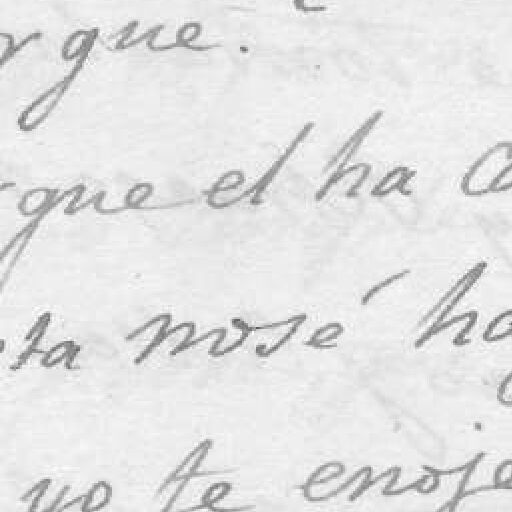 r que.
rque el ha co
ta nosé ha
yo te enoje